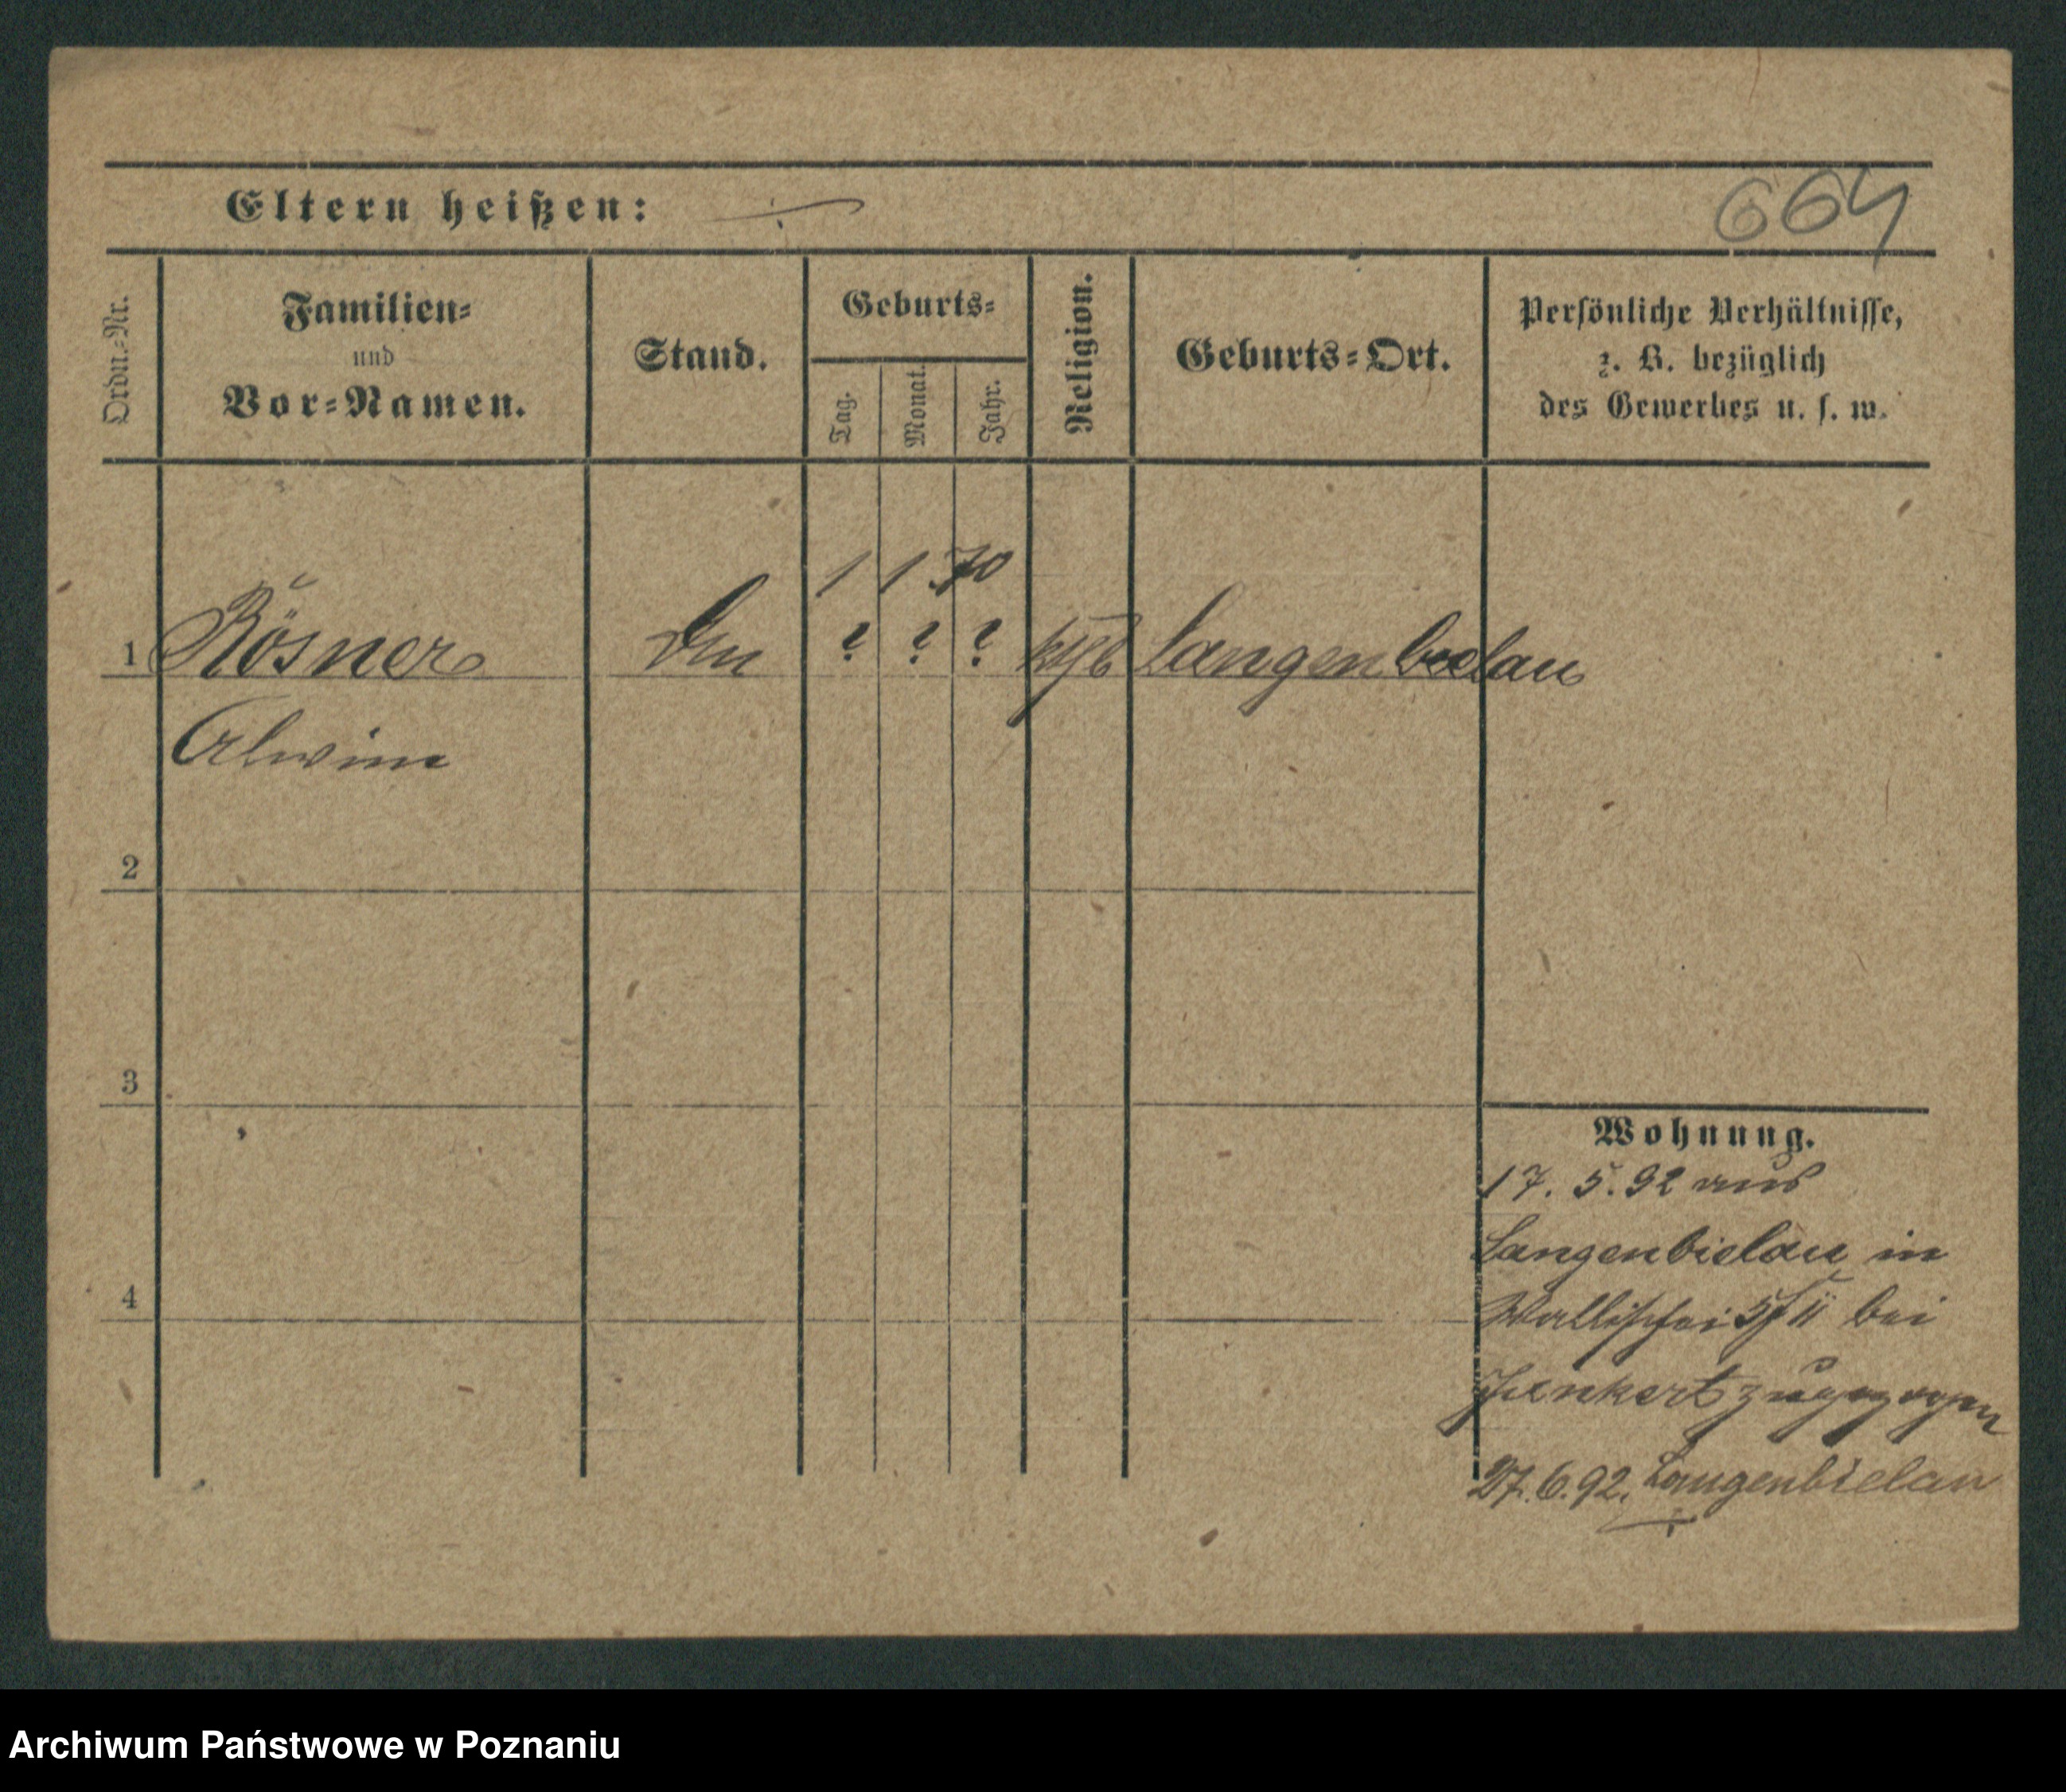 Eltern heißen: 664
Ordn.-Nr.
Familien-
und
Vor-Namen.
Stand.
Geburts-
Tag.
Monat.
Jahr.
Religion.
Geburts-Ort.
Persönliche Verhältnisse,
z. B. bezüglich
des Gewerbes u. s. w.
1 1 70
1 Rösner ? ? ? Langenbielau
Alwine
2
3
4
Wohnung.
17. 5. 92 aus
Langenbielau in
Wallischei 5/II bei
zugezogen
27.6.92. Langenbielau
Archiwum Państwowe w Poznaniu